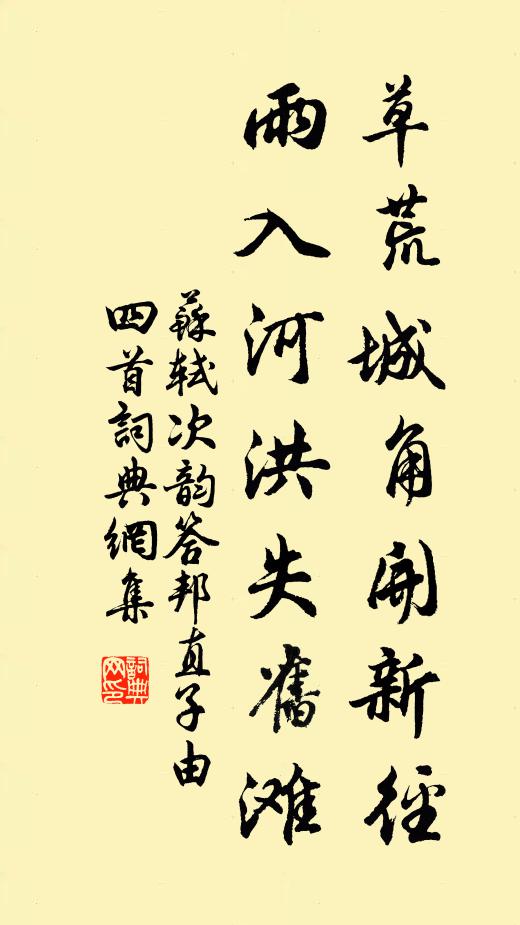 草荒城角開新徑
雨入河洪失舊滩
蘇轼次韵答邦直子由
四首詞典網集
詞典網印